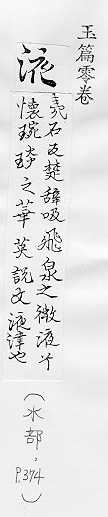 玉篇零卷
液
夷石反楚辭吸飛泉之微液兮
懷琬琰之華英說文液津也
(水部,P.374)